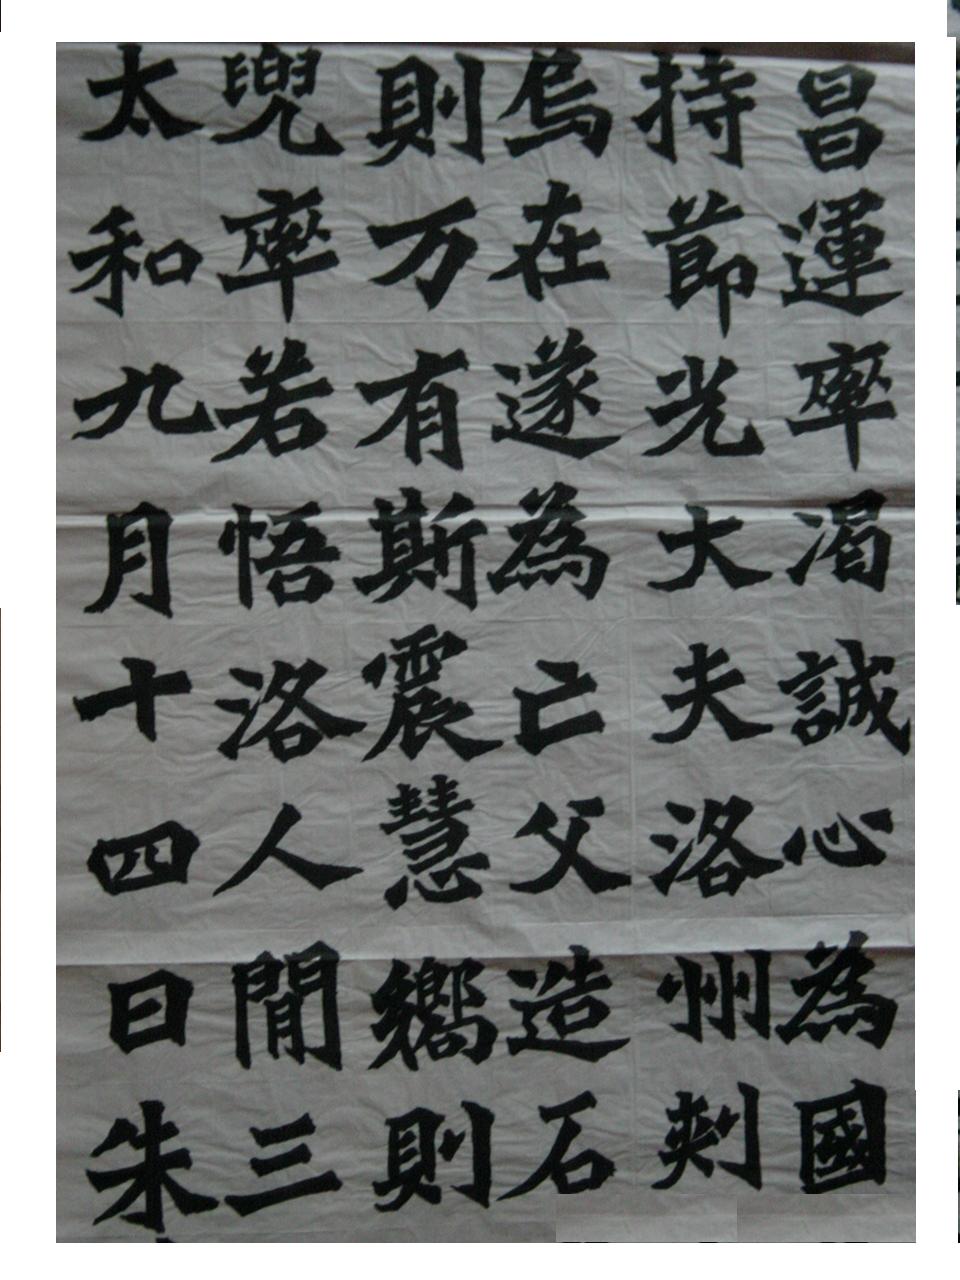 昌運率渴誠心為國
持節光大夫洛州刾
烏在遂為亡父造石
則万有斯震慧嚮則
兜率若悟洛人間三
太和九月十四日朱